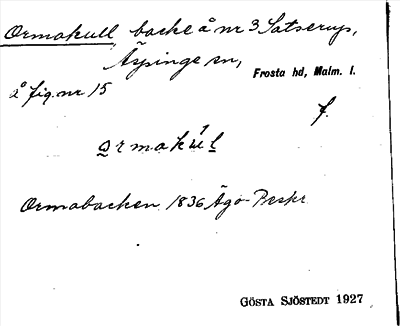 Ormakull, backe å nr 3 Satserup,
Äspinge sn,
Frosta hd, Malm. l.
å fig. nr 15
f.
ormakúl
Ormabacken 1836 Ägo-Beskr.
GÖSTA SJÖSTEDT 1927